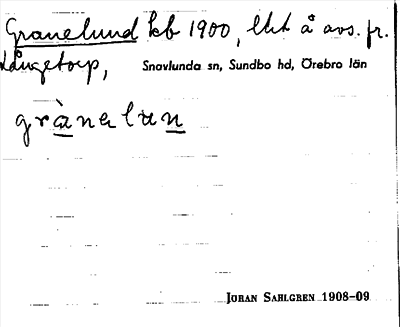 Granelund kb 1900, lht å avs. fr.
Långetorp, Snavlunda sn, Sundbo hd, Örebro län
grànəlun
JÖRAN SAHLGREN 1908-09